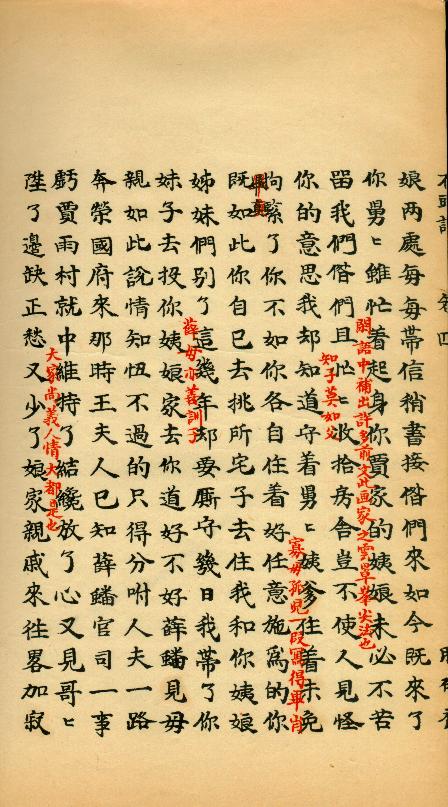 石頭記 卷四
娘兩處每每帶信稍書接偺們來如今既來了
你舅〻雖忙着起身你賈家的姨娘未必不苦
閑語中補出許多前文此画家之雲罩峯尖法也
留我們偺們且忙〻收拾房舍豈不使人見怪
知子莫如父
你的意思我却知道守着舅〻姨爹住着未免
寡母孤兒一段寫得畢肖
畢真
拘緊了你不如你各自住着好任意施爲的你
既如此你自已去挑所宅子去住我和你姨娘
姊妹們别了這幾年却要厮守幾日我帶了你
薛母亦善訓子
妹子去投你姨娘家去你道好不好薛蟠見母
親如此説情知忸不過的只得分咐人夫一路
奔榮國府來那時王夫人已知薛蟠官司一事
虧賈雨村就中維持了結纔放了心又見哥〻
大家尚義人情大都是也
陞了邊缺正愁又少了娘家親戚來徃畧加寂